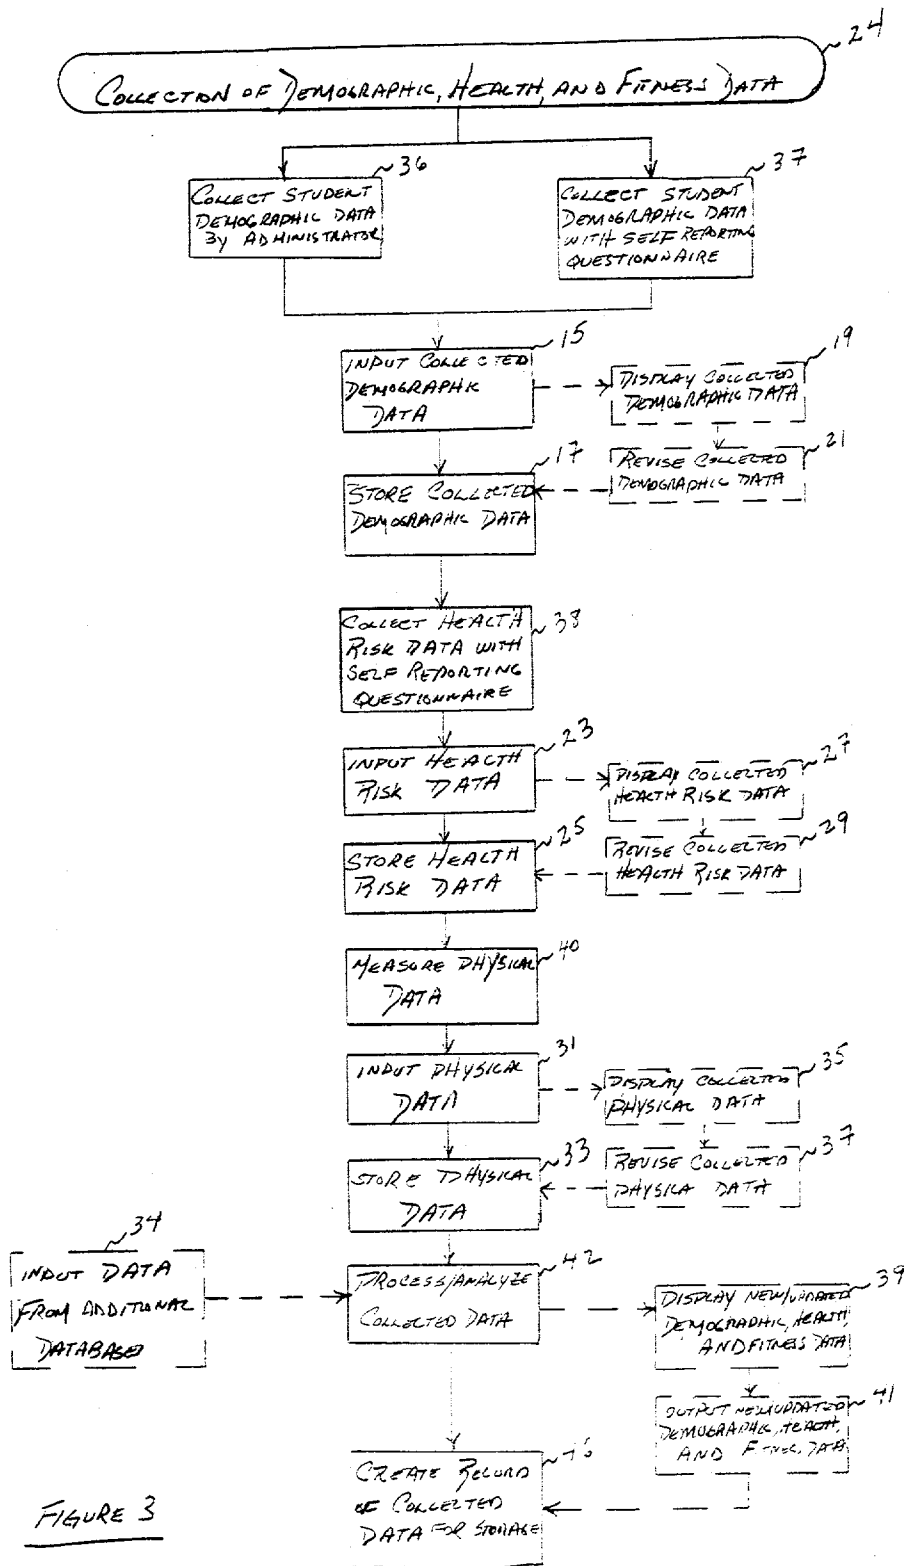 24
COLLECTION OF DEMOGRAPHIC, HEALTH, AND FITNESS DATA
36
COLLECT STUDENT
DEMOGRAPHIC DATA
BY ADMINISTRATOR
37
COLLECT STUDENT
DEMOGRAPHIC DATA
WITH SELF REPORTING
QUESTIONNAIRE
15
INPUT COLLECTED
DEMOGRAPHIC
DATA
19
DISPLAY COLLECTED
DEMOGRAPHIC DATA
17
STORE COLLECTED
DEMOGRAPHIC DATA
21
REVISE COLLECTED
DEMOGRAPHIC DATA
38
COLLECT HEALTH
RISK DATA WITH
SELF REPORTING
QUESTIONNAIRE
23
INPUT HEALTH
RISK DATA
27
DISPLAY COLLECTED
HEALTH RISK DATA
25
STORE HEALTH
RISK DATA
29
REVISE COLLECTED
HEALTH RISK DATA
40
MEASURE PHYSICAL
DATA
31
INPUT PHYSICAL
DATA
35
DISPLAY COLLECTED
PHYSICAL DATA
33
STORE PHYSICAL
DATA
37
REVISE COLLECTED
PHYSICA DATA
34
INPUT DATA
FROM ADDITIONAL
DATABASE
42
PROCESS/ANALYZE
COLLECTED DATA
39
DISPLAY NEW/UPDATED
DEMOGRAPHIC, HEALTH,
AND FITNESS DATA
41
OUTPUT NEW/UPDATED
DEMOGRAPHIC, HEALTH,
AND DATA
CREATE RECORD
OF COLLECTED
DATA FOR STORAGE
FIGURE 3